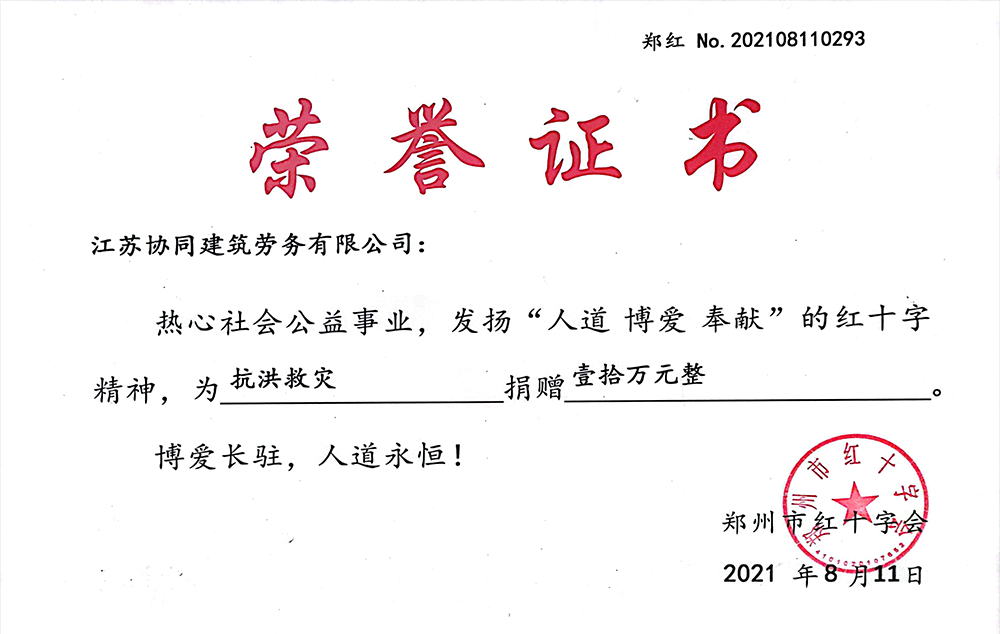 郑红 No.202108110293
荣誉证书
江苏协同建筑劳务有限公司：
热心社会公益事业，发扬“人道 博爱 奉献”的红十字
精神，为抗洪救灾捐赠壹拾万元整。
博爱长驻，人道永恒！
郑州市红十字会
郑州市红十字会
4101020107653
2021 年 8 月 11 日